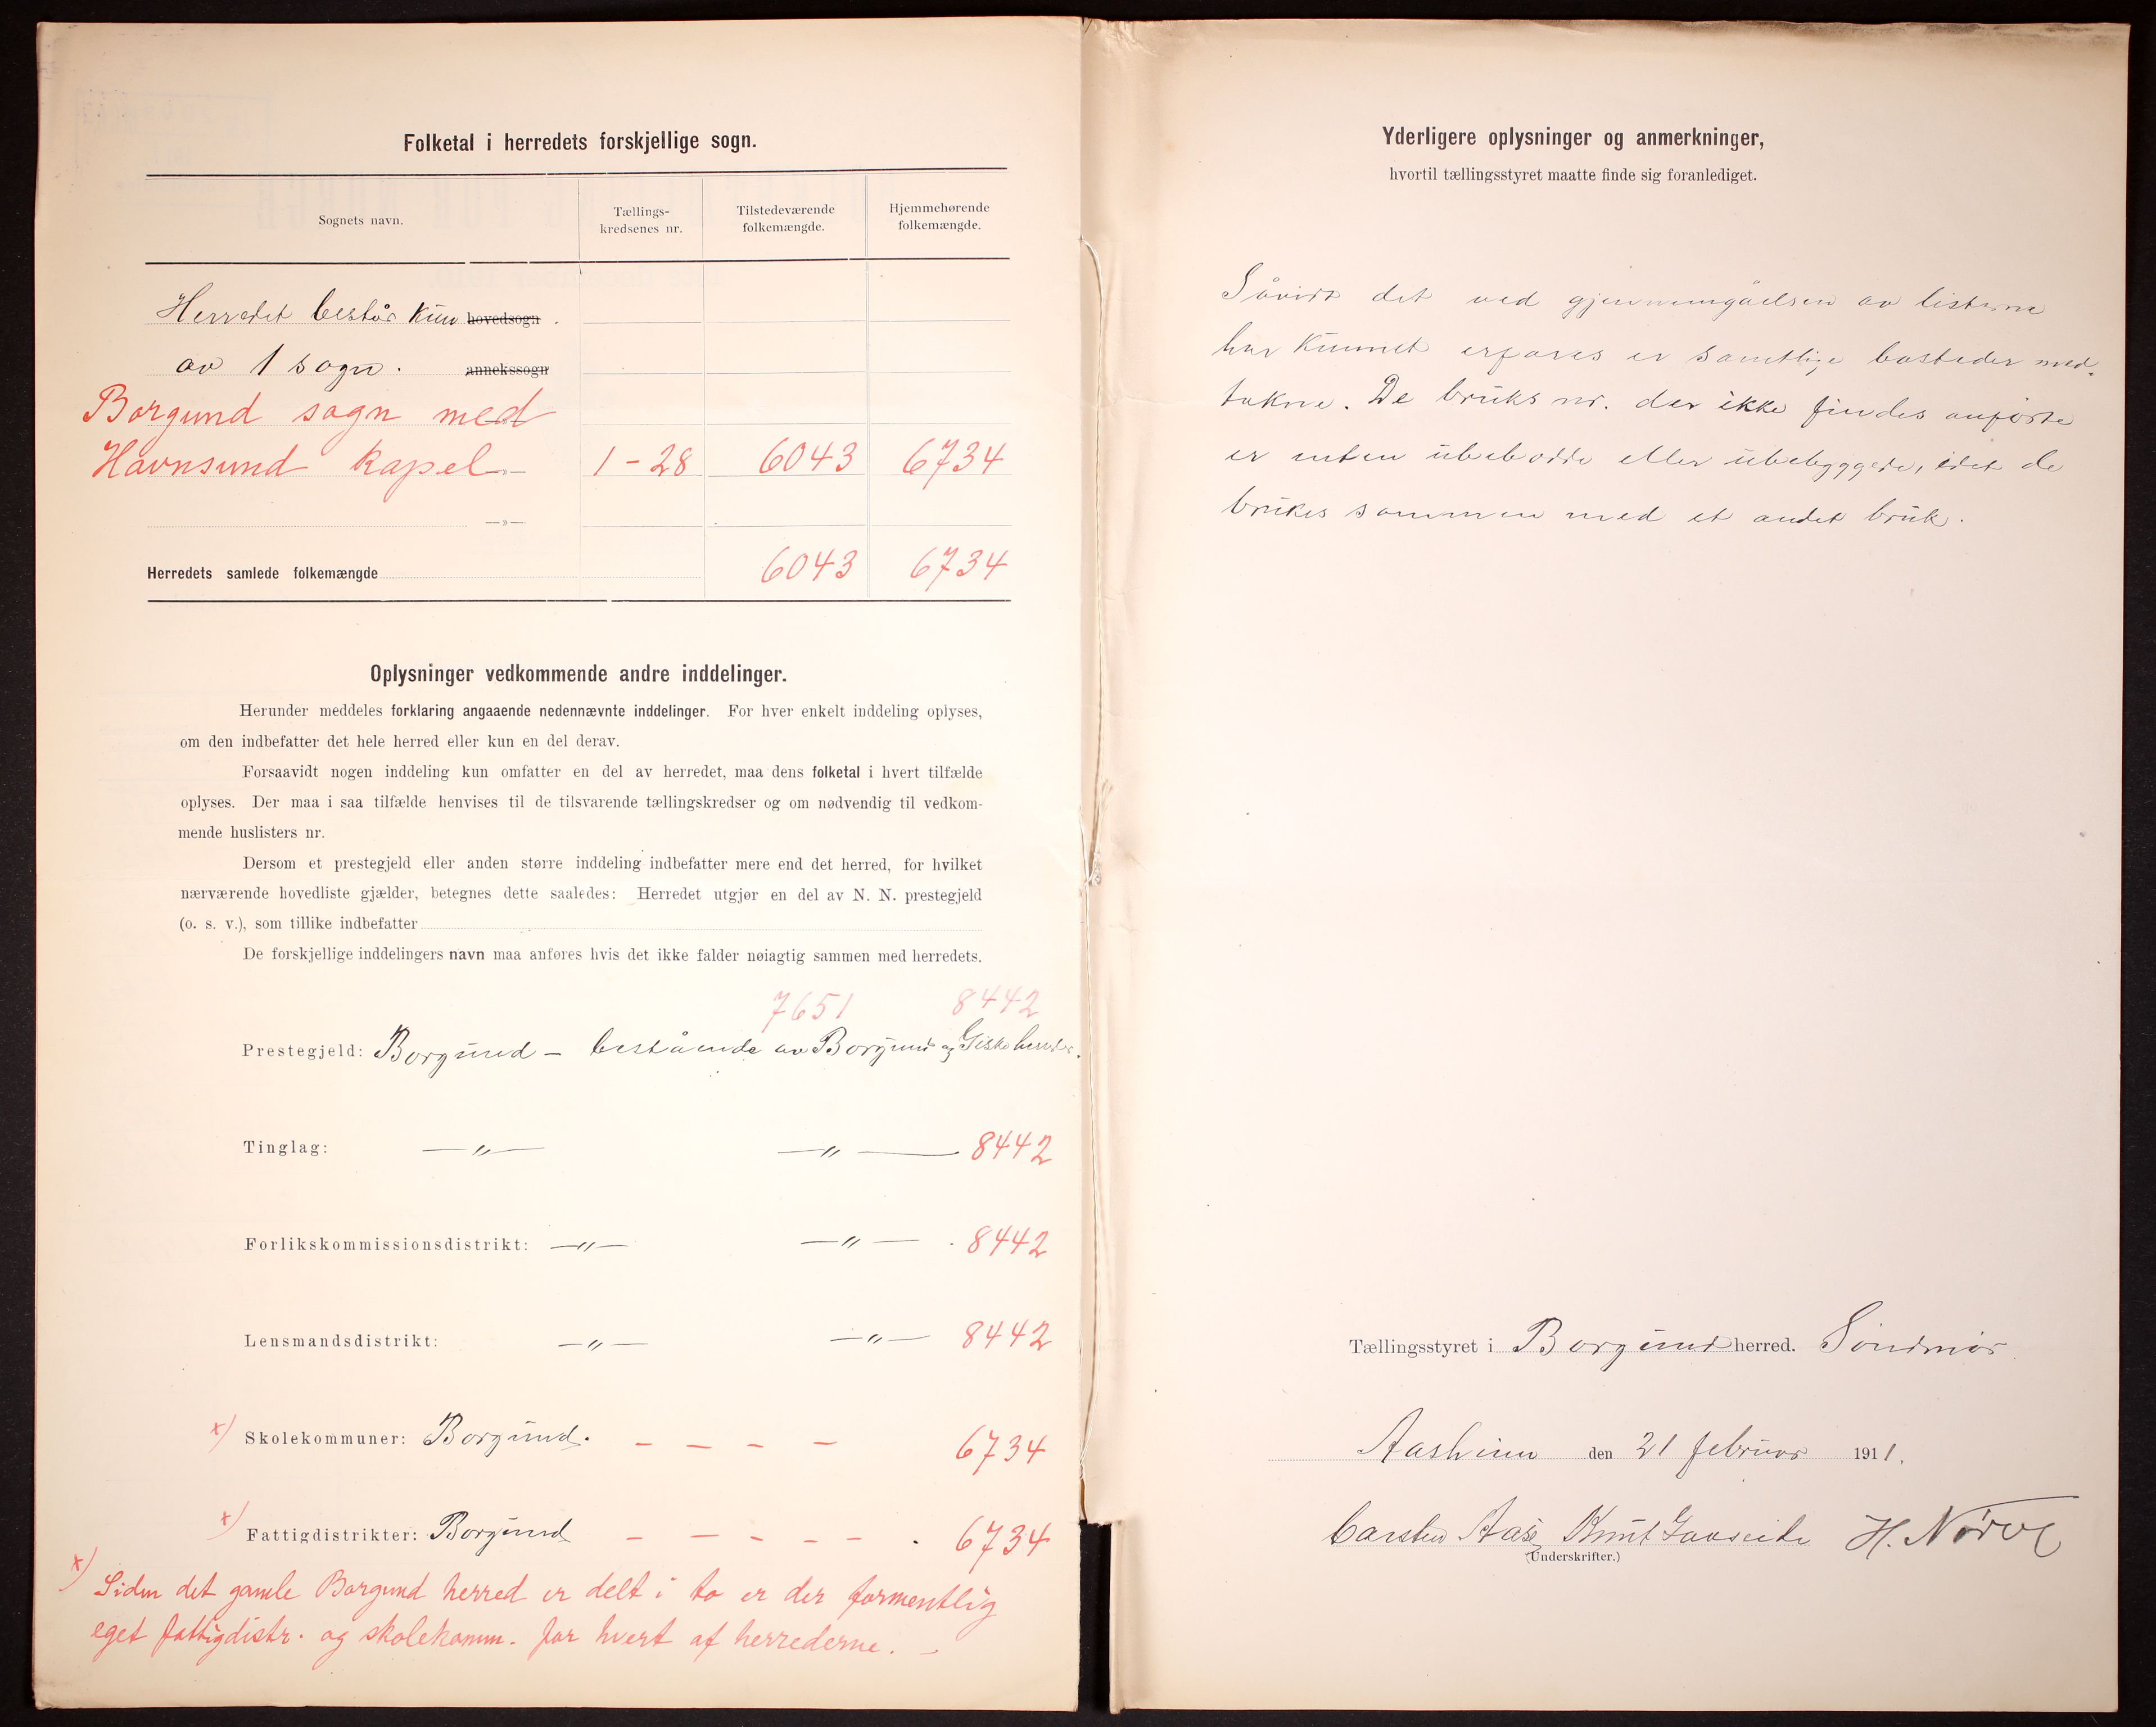 Folketal i herredets forskjellige sogn.
Sognets navn.
Tællings-
kredsenes nr.
Tilstedeværende
folkemængde.
Hjemmehørende
folkemængde.
Herredet består kun hovedsogn.
av 1 sogn. annekssogn
Borgund sogn med
Havnsund kapel — 1-28 6043 6734
—»—
Herredets samlede folkemængde 6043 6734
Oplysninger vedkommende andre inddelinger.
Herunder meddeles forklaring angaaende nedennævnte inddelinger. For hver enkelt inddeling oplyses,
om den indbefatter det hele herred eller kun en del derav.
Forsaavidt nogen inddeling kun omfatter en del av herredet, maa dens folketal i hvert tilfælde
oplyses. Der maa i saa tilfælde henvises til de tilsvarende tællingskredser og om nødvendig til vedkom-
mende huslisters nr.
Dersom et prestegjeld eller anden større inddeling indbefatter mere end det herred, for hvilket
nærværende hovedliste gjælder, betegnes dette saaledes: Herredet utgjør en del av N. N. prestegjeld
(o. s. v.), som tillike indbefatter
De forskjellige inddelingers navn maa anføres hvis det ikke falder nøiagtig sammen med herredets.
7651 8442
Prestegjeld: Borgund — bestående av Borgund og Giske herreder.
Tinglag: —〃— —〃— 8442
Forlikskommissionsdistrikt: —〃— —〃— . 8442
Lensmandsdistrikt: —〃— —〃— 8442
x) Skolekommuner: Borgund. — — — — 6734
x) Fattigdistrikter: Borgund — — — — — . 6734
x) Siden det gamle Borgund herred er delt i to er der formentlig
eget fattigdistr. og skolekomm. for hvert af herrederne. —
Yderligere oplysninger og anmerkninger,
hvortil tællingsstyret maatte finde sig foranlediget.
Såvidt det ved gjennemgåelsen av listerne
har kunnet erfares er samtlige bosteder med-
takne. De bruks nr. der ikke findes anførte
er enten ubebodde eller ubebyggede, idet de
brukes sammen med et andet bruk.
Tællingsstyret i Borgund herred. Søndmør
Aasheim den 21 februar 1911.
Carsten Aase Knut Gaaseide H. Nørve
(Underskrifter.)